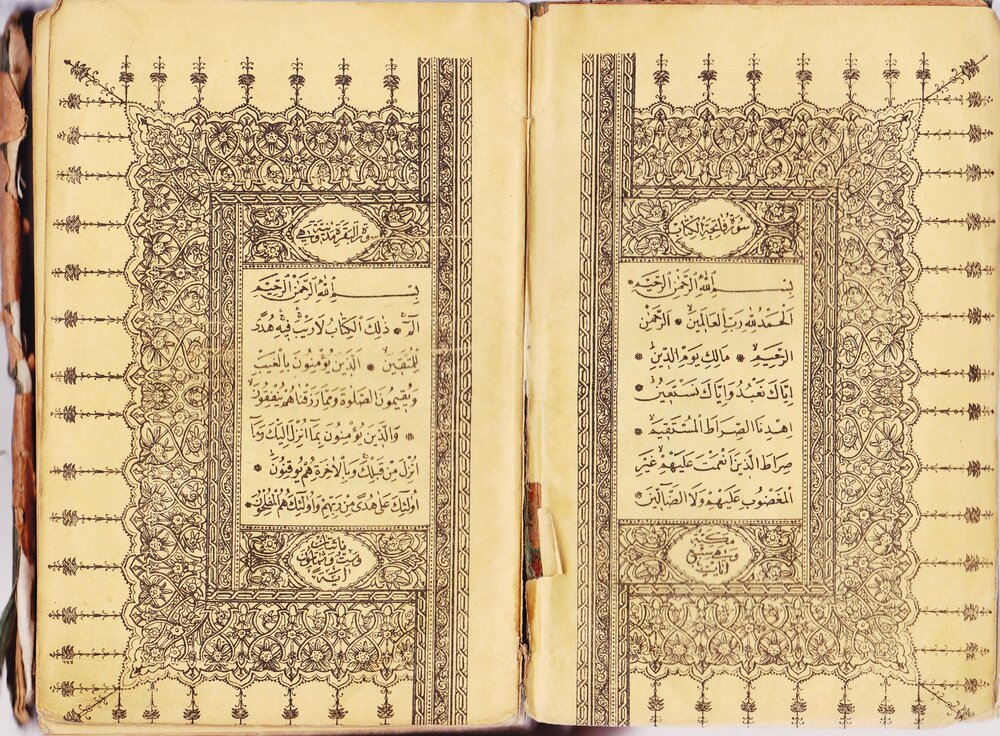 سورة فاتحة الكتاب
بسم الله الرحمن الرحيم
الحمد لله رب العالمين * الرحمن
الرحيم * مالك يوم الدين *
اياك نعبد واياك نستعين *
اهدنا الصراط المستقيم *
صراط الذين انعمت عليهم غير
المغضوب عليهم ولا الضالين
مكية
وهي سبع
ايات
سورة البقرة مدنية وهي
بسم الله الرحمن الرحيم
الم * ذلك الكتاب لا ريب فيه هدى
للمتقين * الذين يؤمنون بالغيب
ويقيمون الصلوة ومما رزقناهم ينفقون
* والذين يؤمنون بما انزل اليك وما
انزل من قبلك وبالاخرة هم يوقنون *
اولئك على هدى من ربهم واولئك هم المفلحون *
مائتان
وست وثمانون
اية